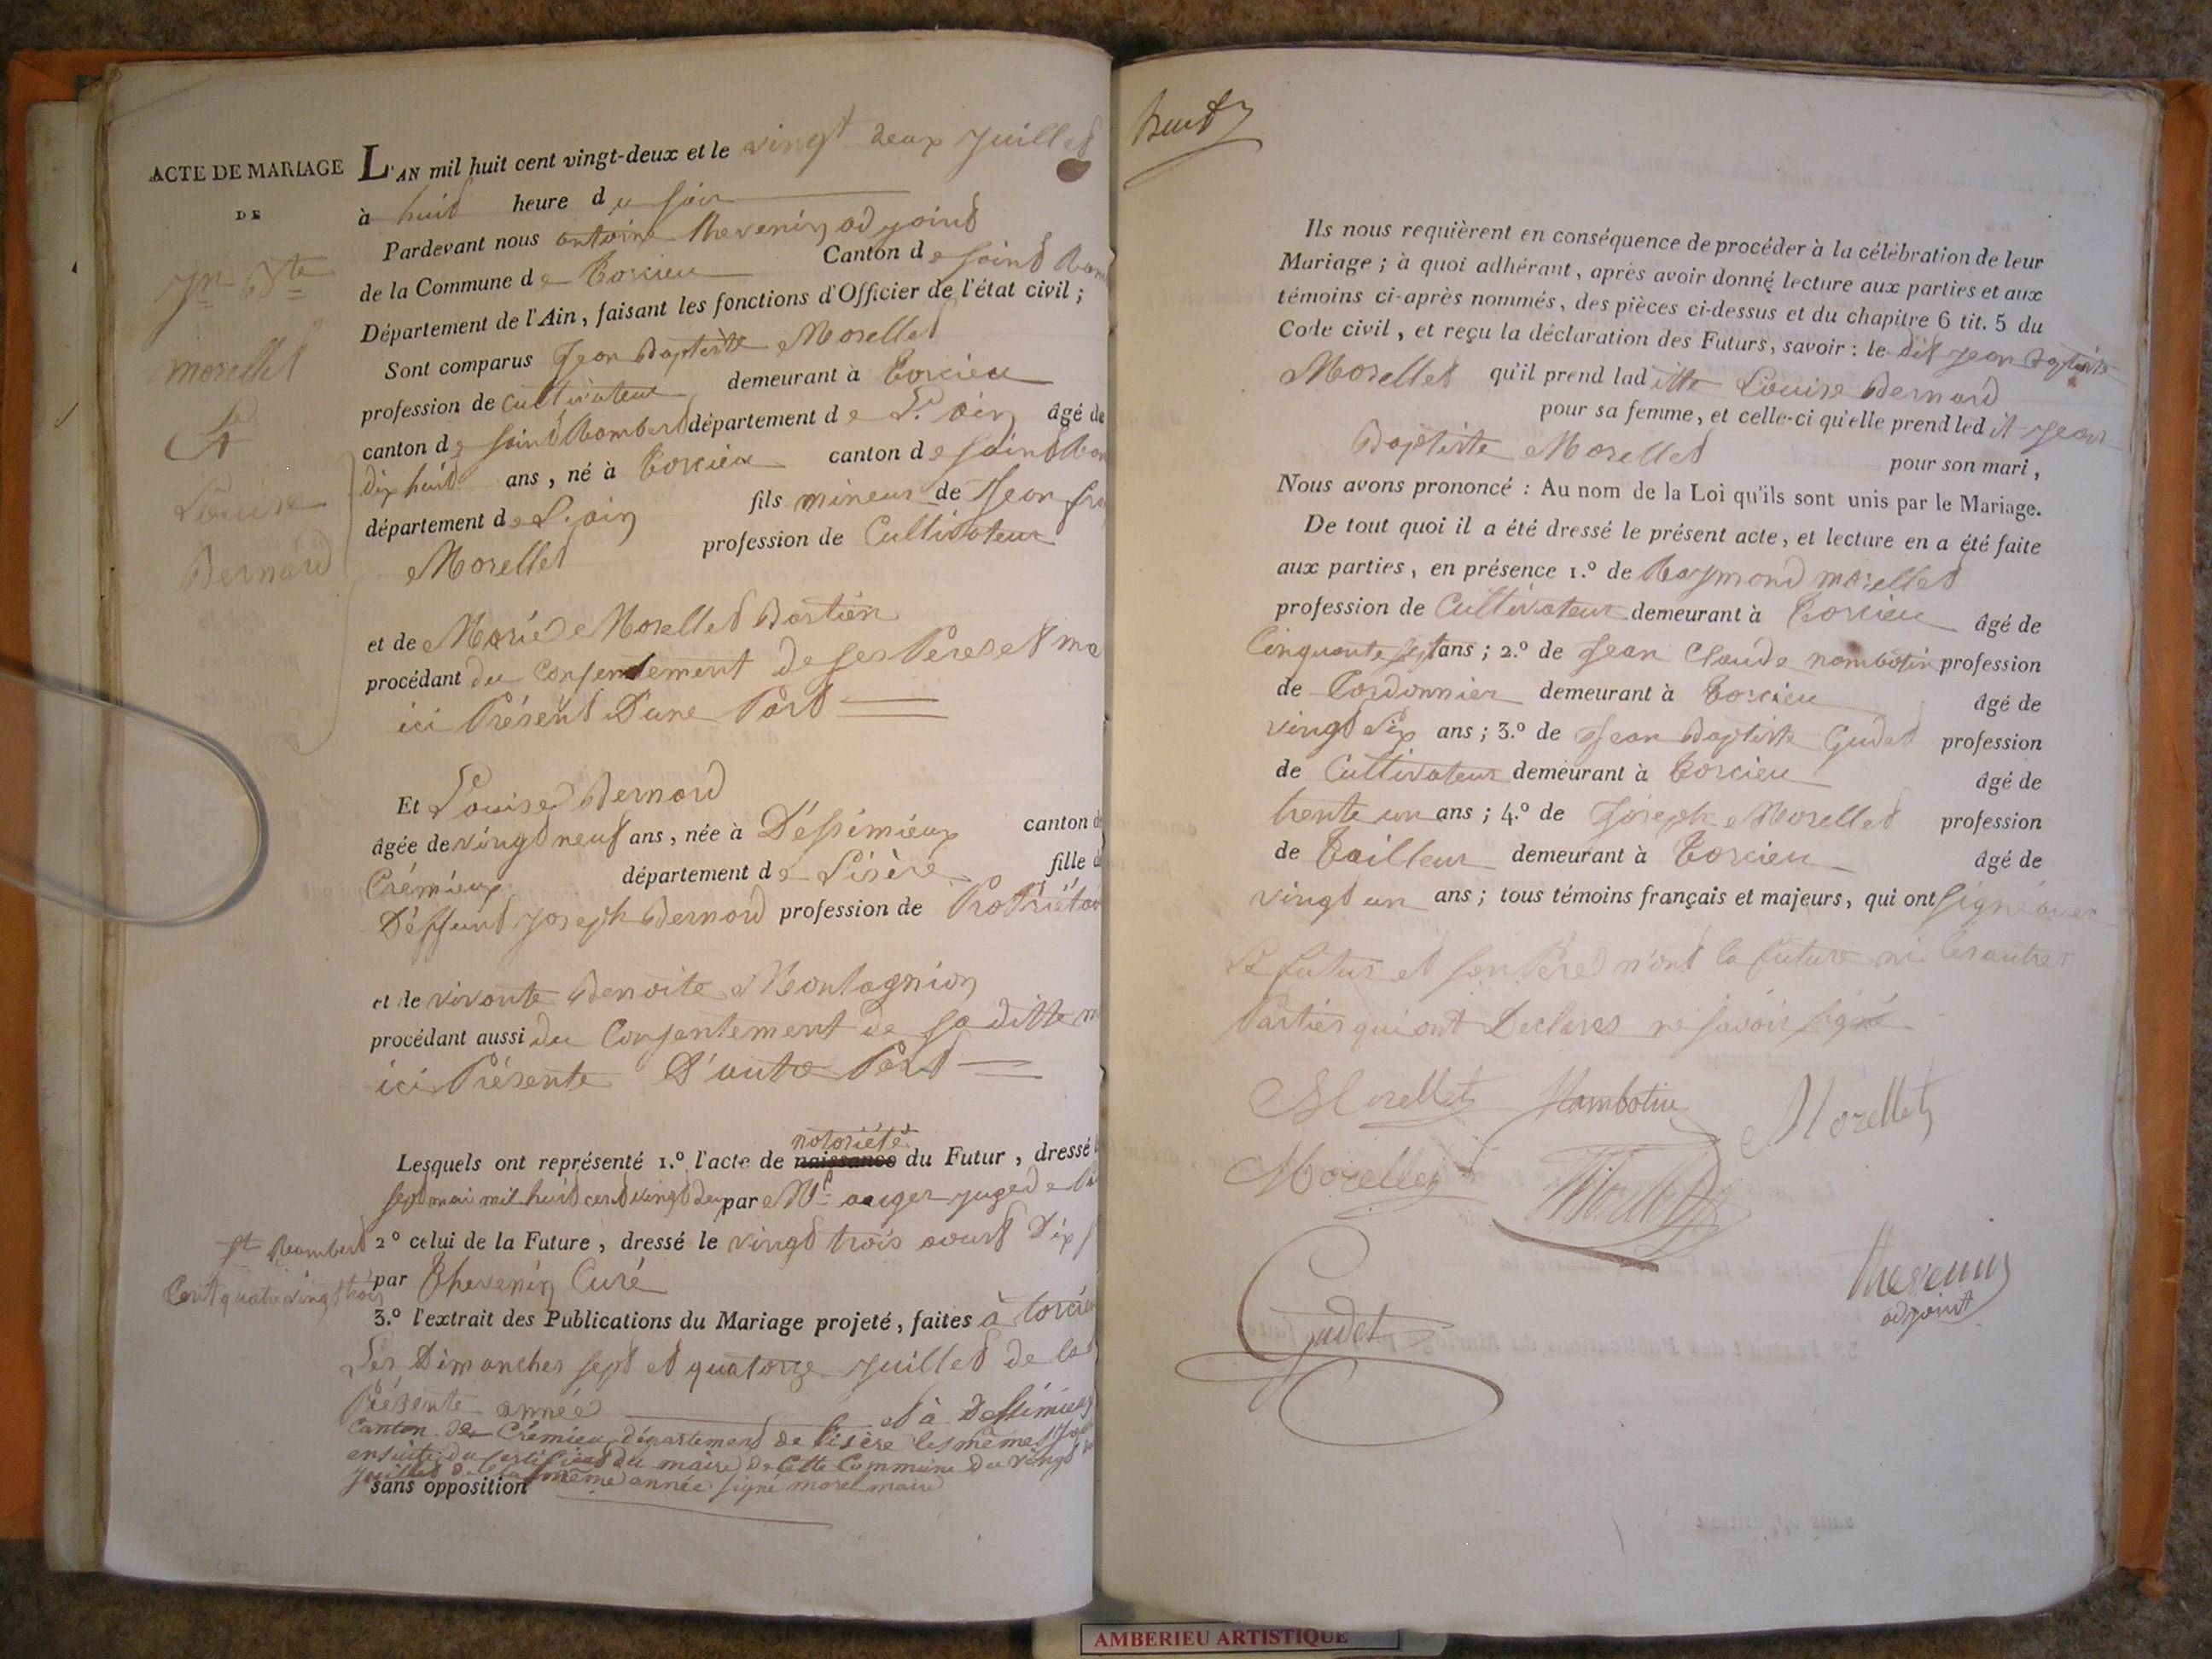 ACTE DE MARIAGE
DE
jn Bte
morellet
Et
Louise
Bernard
L'AN mil huit cent vingt-deux et le vingt deux juillet
à huit heure du soir
Pardevant nous antoine thevenin adjoint
de la Commune de Torcieu Canton de saint Ram
Département de l'Ain, faisant les fonctions d'Officier de l'état civil;
Sont comparus Jean Baptiste Morellet
profession de cultivateur demeurant à Torcieu
canton de saint Rambert département de L'ain âgé de
dix huit ans, né à Torcieu canton de saint Ram
département de L'ain fils mineur de Jean fra
Morellet profession de Cultivateur
et de Marie Morellet Bastien
procédant du consentement de ses Peres et me
ici Présent D'une Part
Et Louise Bernard
âgée de vingt neuf ans, née à Déssimieux canton de
Crémieux département de Lisère fille de
Déffunt joseph Bernard profession de Proprietai
et de vivante Benoite Montagnion
procédant aussi du Consentement de sa ditte m
ici Présente D'autre Part
notoriété
Lesquels ont représenté 1.º l'acte de naissance du Futur, dressé le
sept mai mil huit cent vingt deux par Mr auger juge de Pai
st Rambert
2º celui de la Future, dressé le vingt trois aoust Dix s
Cent quatre vingt trois
par Thevenin Curé
3.º l'extrait des Publications du Mariage projeté, faites à torcieu
Les Dimanches sept et quatorze juillet de la
Présente année et à Dessimieux
Canton de Crémieu département de lisère les mêmes jours
ensuite du certificat du maire de Cette Commune du vingt
juillet de la même année signé morel maire
sans opposition
huit
Ils nous requièrent en conséquence de procéder à la célébration de leur
Mariage; à quoi adhérant, après avoir donné lecture aux parties et aux
témoins ci-après nommés, des pièces ci-dessus et du chapitre 6 tit. 5 du
Code civil, et reçu la déclaration des Futurs, savoir: le dit jean Baptiste
Morellet qu'il prend laditte Louise Bernard
pour sa femme, et celle-ci qu'elle prend ledit jean
Baptiste Morellet pour son mari,
Nous avons prononcé: Au nom de la Loi qu'ils sont unis par le Mariage.
De tout quoi il a été dressé le présent acte, et lecture en a été faite
aux parties, en présence 1.º de Raymond morellet
profession de Cultivateur demeurant à Torcieu âgé de
Cinquante sept ans; 2.º de Jean Claude nambotin profession
de Cordonnier demeurant à Torcieu âgé de
vingt six ans; 3.º de Jean Baptiste Gudet profession
de Cultivateur demeurant à Torcieu âgé de
trente un ans; 4.º de Joseph Morellet profession
de Tailleur demeurant à Torcieu âgé de
vingt un ans; tous témoins français et majeurs, qui ont signé avec
Le futur et son Pere n'ont la future ni les autres
Parties qui ont Declares ne savoir signé
Morellet Nambotin Morellet
Morellet Morellet
Gudet
thevenin
adjoint
AMBERIEU ARTISTIQUE